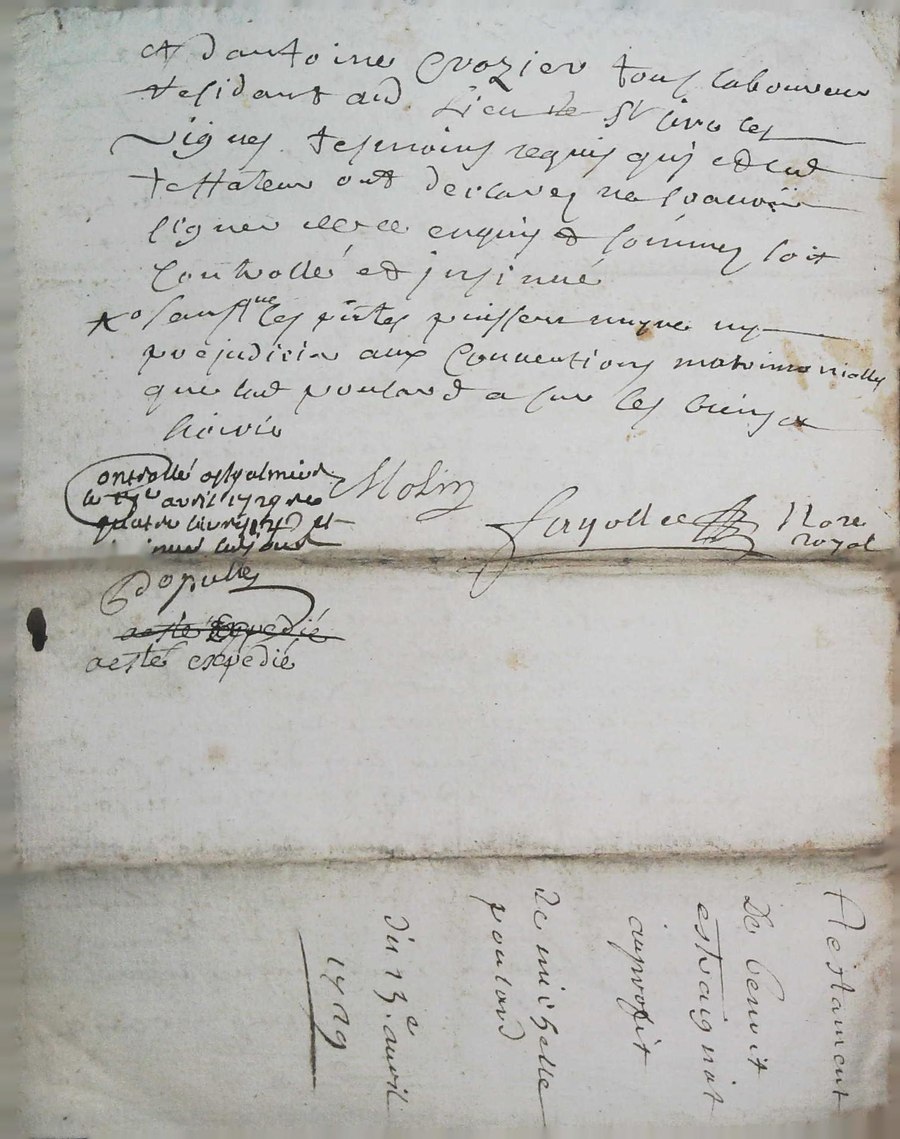 et dantoine Crozier tous laboureur
residant aud lieu de St ciro les
vignes tesmoins requis quj et led
testateur ont declarez ne scauoir
signer de ce enquis et sommez soit
controllé et jnsinué
sans que les puisse nuyre ny
prejudicier aux Conuentions matrimonialles
que lad poulard a sur les biens
Controllé a St galmier
le avril 1729 reç
quatre livres et
Molin
fayolle Nore
royal
aesté Expedié
aesté expedié
Testament
De benoit
estraignat
auprofit
De michelle
poulard
du 13.e avril
1729